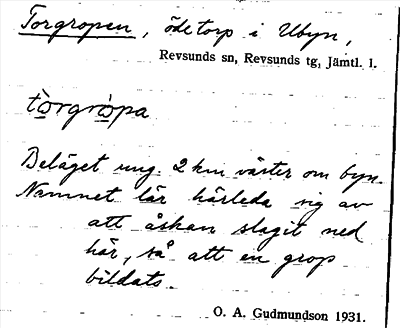 Torgropen, ödetorp i Ubyn,
Revsunds sn, Revsunds tg, Jämtl. l.
tòrgròpa
Beläget ung. 2 km väster om byn.
Namnet lär härleda sig av
att åskan slagit ned
här, så att en grop
bildats.
O. A. Gudmundson 1931.